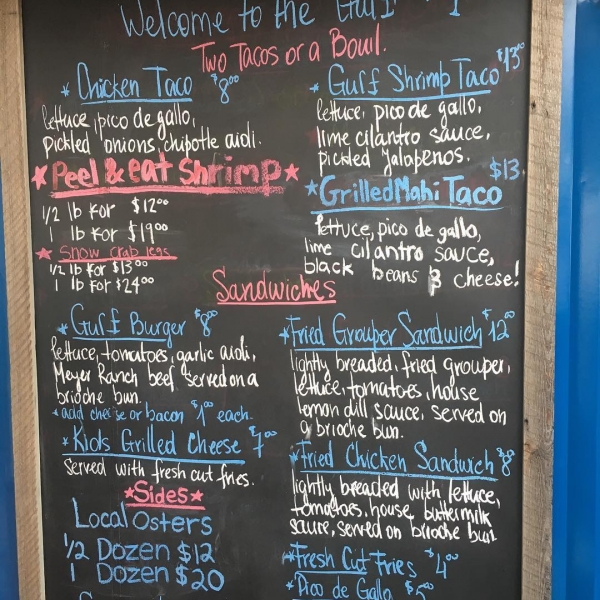 Welcome to the Gulf
Two Tacos or a Bowl.
* Chicken Taco $8⁰⁰
lettuce, pico de gallo,
pickled onions, chipotle aioli.
* Gulf Shrimp Taco $13⁰⁰
lettuce, pico de gallo,
lime cilantro sauce,
pickled jalapenos.
★ Peel & eat Shrimp ★
1/2 lb for $12⁰⁰
1 lb for $19⁰⁰
★ Snow crab legs
1/2 lb for $13⁰⁰
1 lb for $24⁰⁰
* Grilled Mahi Taco $13
lettuce, pico de gallo,
lime cilantro sauce,
black beans & cheese!
Sandwiches
* Gulf Burger $8⁰⁰
lettuce, tomatoes, garlic aioli,
Meyer Ranch beef served on a
brioche bun.
* add cheese or bacon $1⁰⁰ each.
* Kids Grilled Cheese $7⁰⁰
Served with fresh cut fries.
★ Sides ★
Local Osters
1/2 Dozen $12
1 Dozen $20
* Fried Grouper Sandwich $12⁰⁰
lightly breaded, fried grouper,
lettuce, tomatoes, house
lemon dill sauce, served on
a brioche bun.
* Fried Chicken Sandwich $8
lightly breaded with lettuce,
tomatoes, house buttermilk
sauce, served on brioche bun
* Fresh Cut Fries $4⁰⁰
* Pico de Gallo